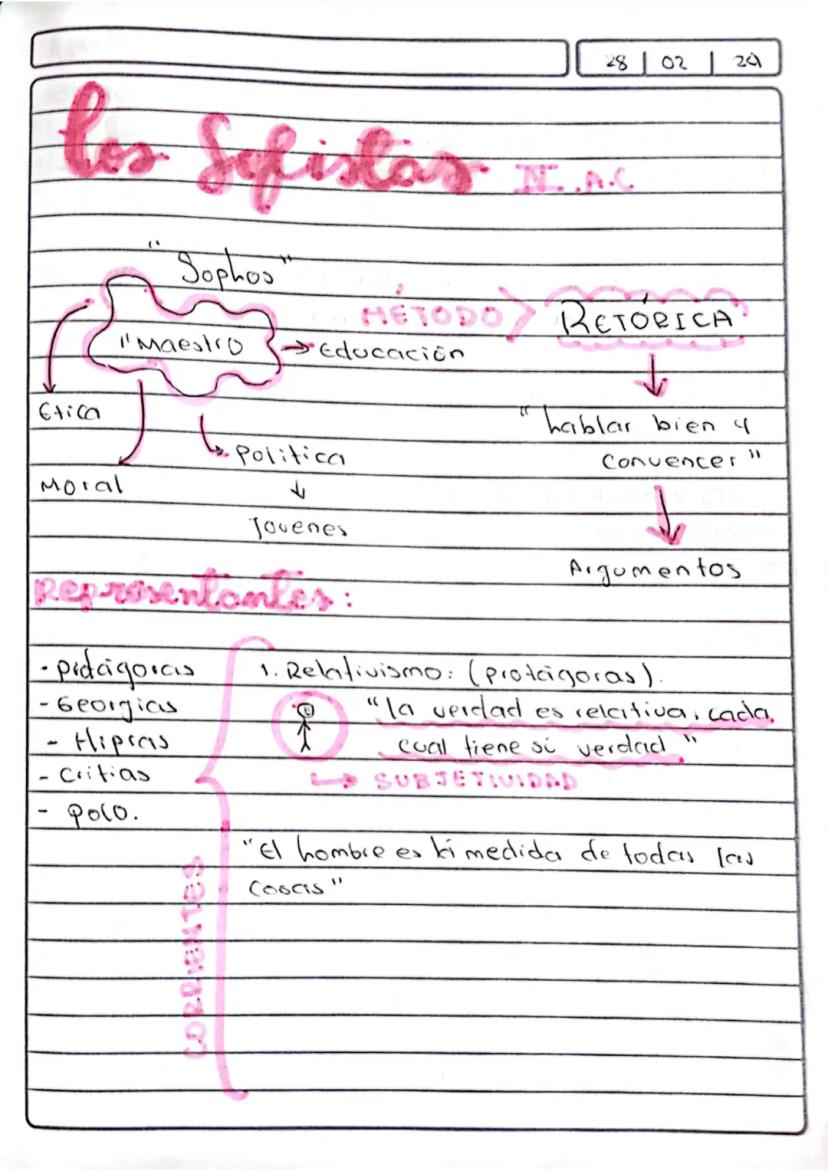 28 | 02 | 24
Los Sofistas IV. A.C
"Sophos"
"Maestro → Educación
Etica
Moral
Politica
Jovenes
MÉTODO > RETÓRICA
"hablar bien y
convencer"
Argumentos
Representantes:
• Protágoras
- Georgias
- Hipias
- Critias
- Polo.
CORRIENTES
1. Relativismo: (protágoras).
"la verdad es relativa, cada
cual tiene su verdad"
SUBJETIVIDAD
"El hombre es la medida de todas las
cosas"